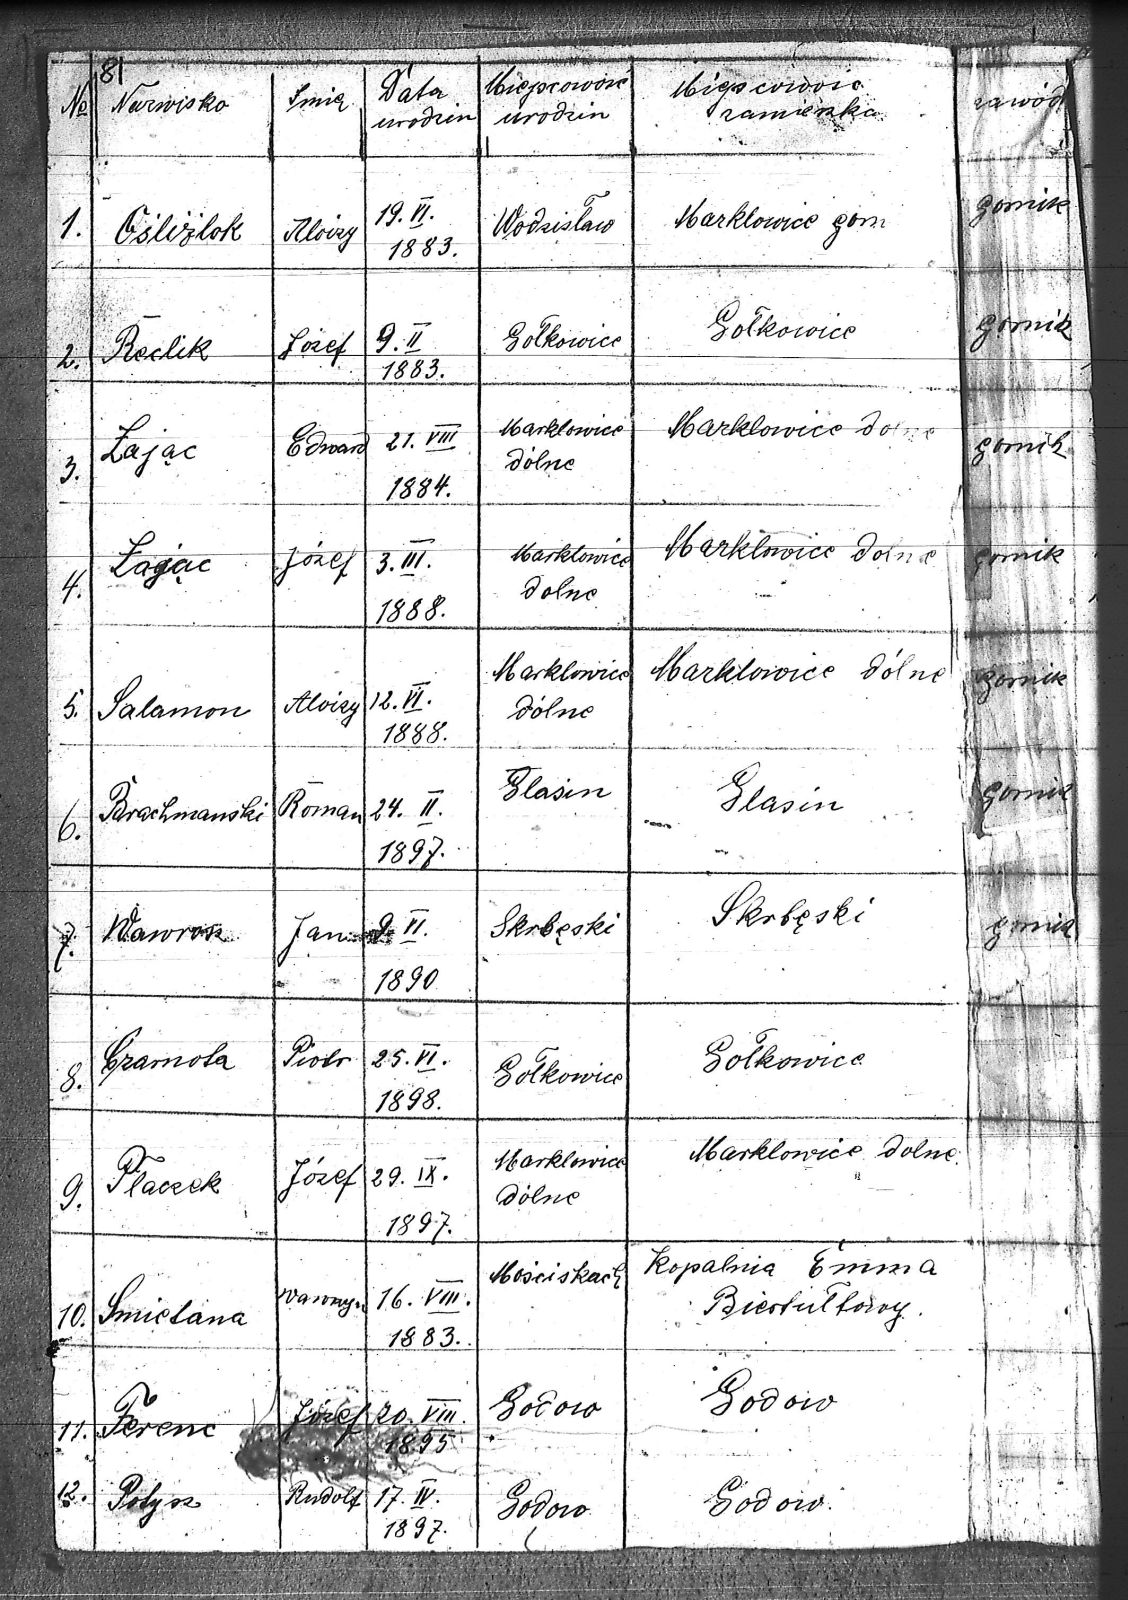 81
№ Nazwisko Imię Data urodzin Miejscowość urodzin Miejscowość zamieszka zawód
1. Oślizlok Aloizy 19. VI. 1883. Wodzisław Marklowice gorn gornik
2. Reclik Józef 9. II 1883. Gołkowice Gołkowice gornik
3. Zając Edward 21. VIII 1884. Marklowice dolne Marklowice dolne gornik
4. Zając Józef 3. III. 1888. Marklowice dolne Marklowice dolne gornik
5. Salamon Aloizy 12. VI. 1888. Marklowice dólne Marklowice dólne gornik
6. Brachmanski Roman 24. II. 1897. Glasin Glasin gornik
7. Wawrosz Jan 9. VI. 1890 Skrbęski Skrbęski gornik
8. Czarnota Piotr 25. VI. 1898. Gołkowice Gołkowice
9. Płaczek Józef 29. IX. 1897. Marklowice dólne Marklowice dolne.
10. Smietana Wawrzyn 16. VIII. 1883. Mościskach Kopalnia Emma Biertułtowy.
11. Ferenc Józef 20. VIII. 1895 Godow Godow
12. Potysz Rudolf 17. IV. 1897. Godow Godow.